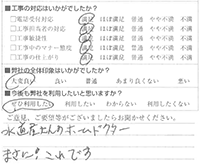 ■工事の対応はいかがでしたか?
□電話受付対応 満足 ほぼ満足 普通 やや不満 不満
□工事担当者の対応 満足 ほぼ満足 普通 やや不満 不満
□工事新速性 満足 ほぼ満足 普通 やや不満 不満
□工事中のマナー態度 満足 ほぼ満足 普通 やや不満 不満
□工事の仕上がり 満足 ほぼ満足 普通 やや不満 不満
■弊社の全体印象はいかがでしたか?
大変良い 良い 普通 あまり良くない 悪い
■今後も弊社を利用したいと思いますか?
ぜひ利用したい 利用したい わからない 利用したくない
ご意見、ご要望等がございましたらお聞かせください。
水道屋さんのホームドクター
まさに!これです